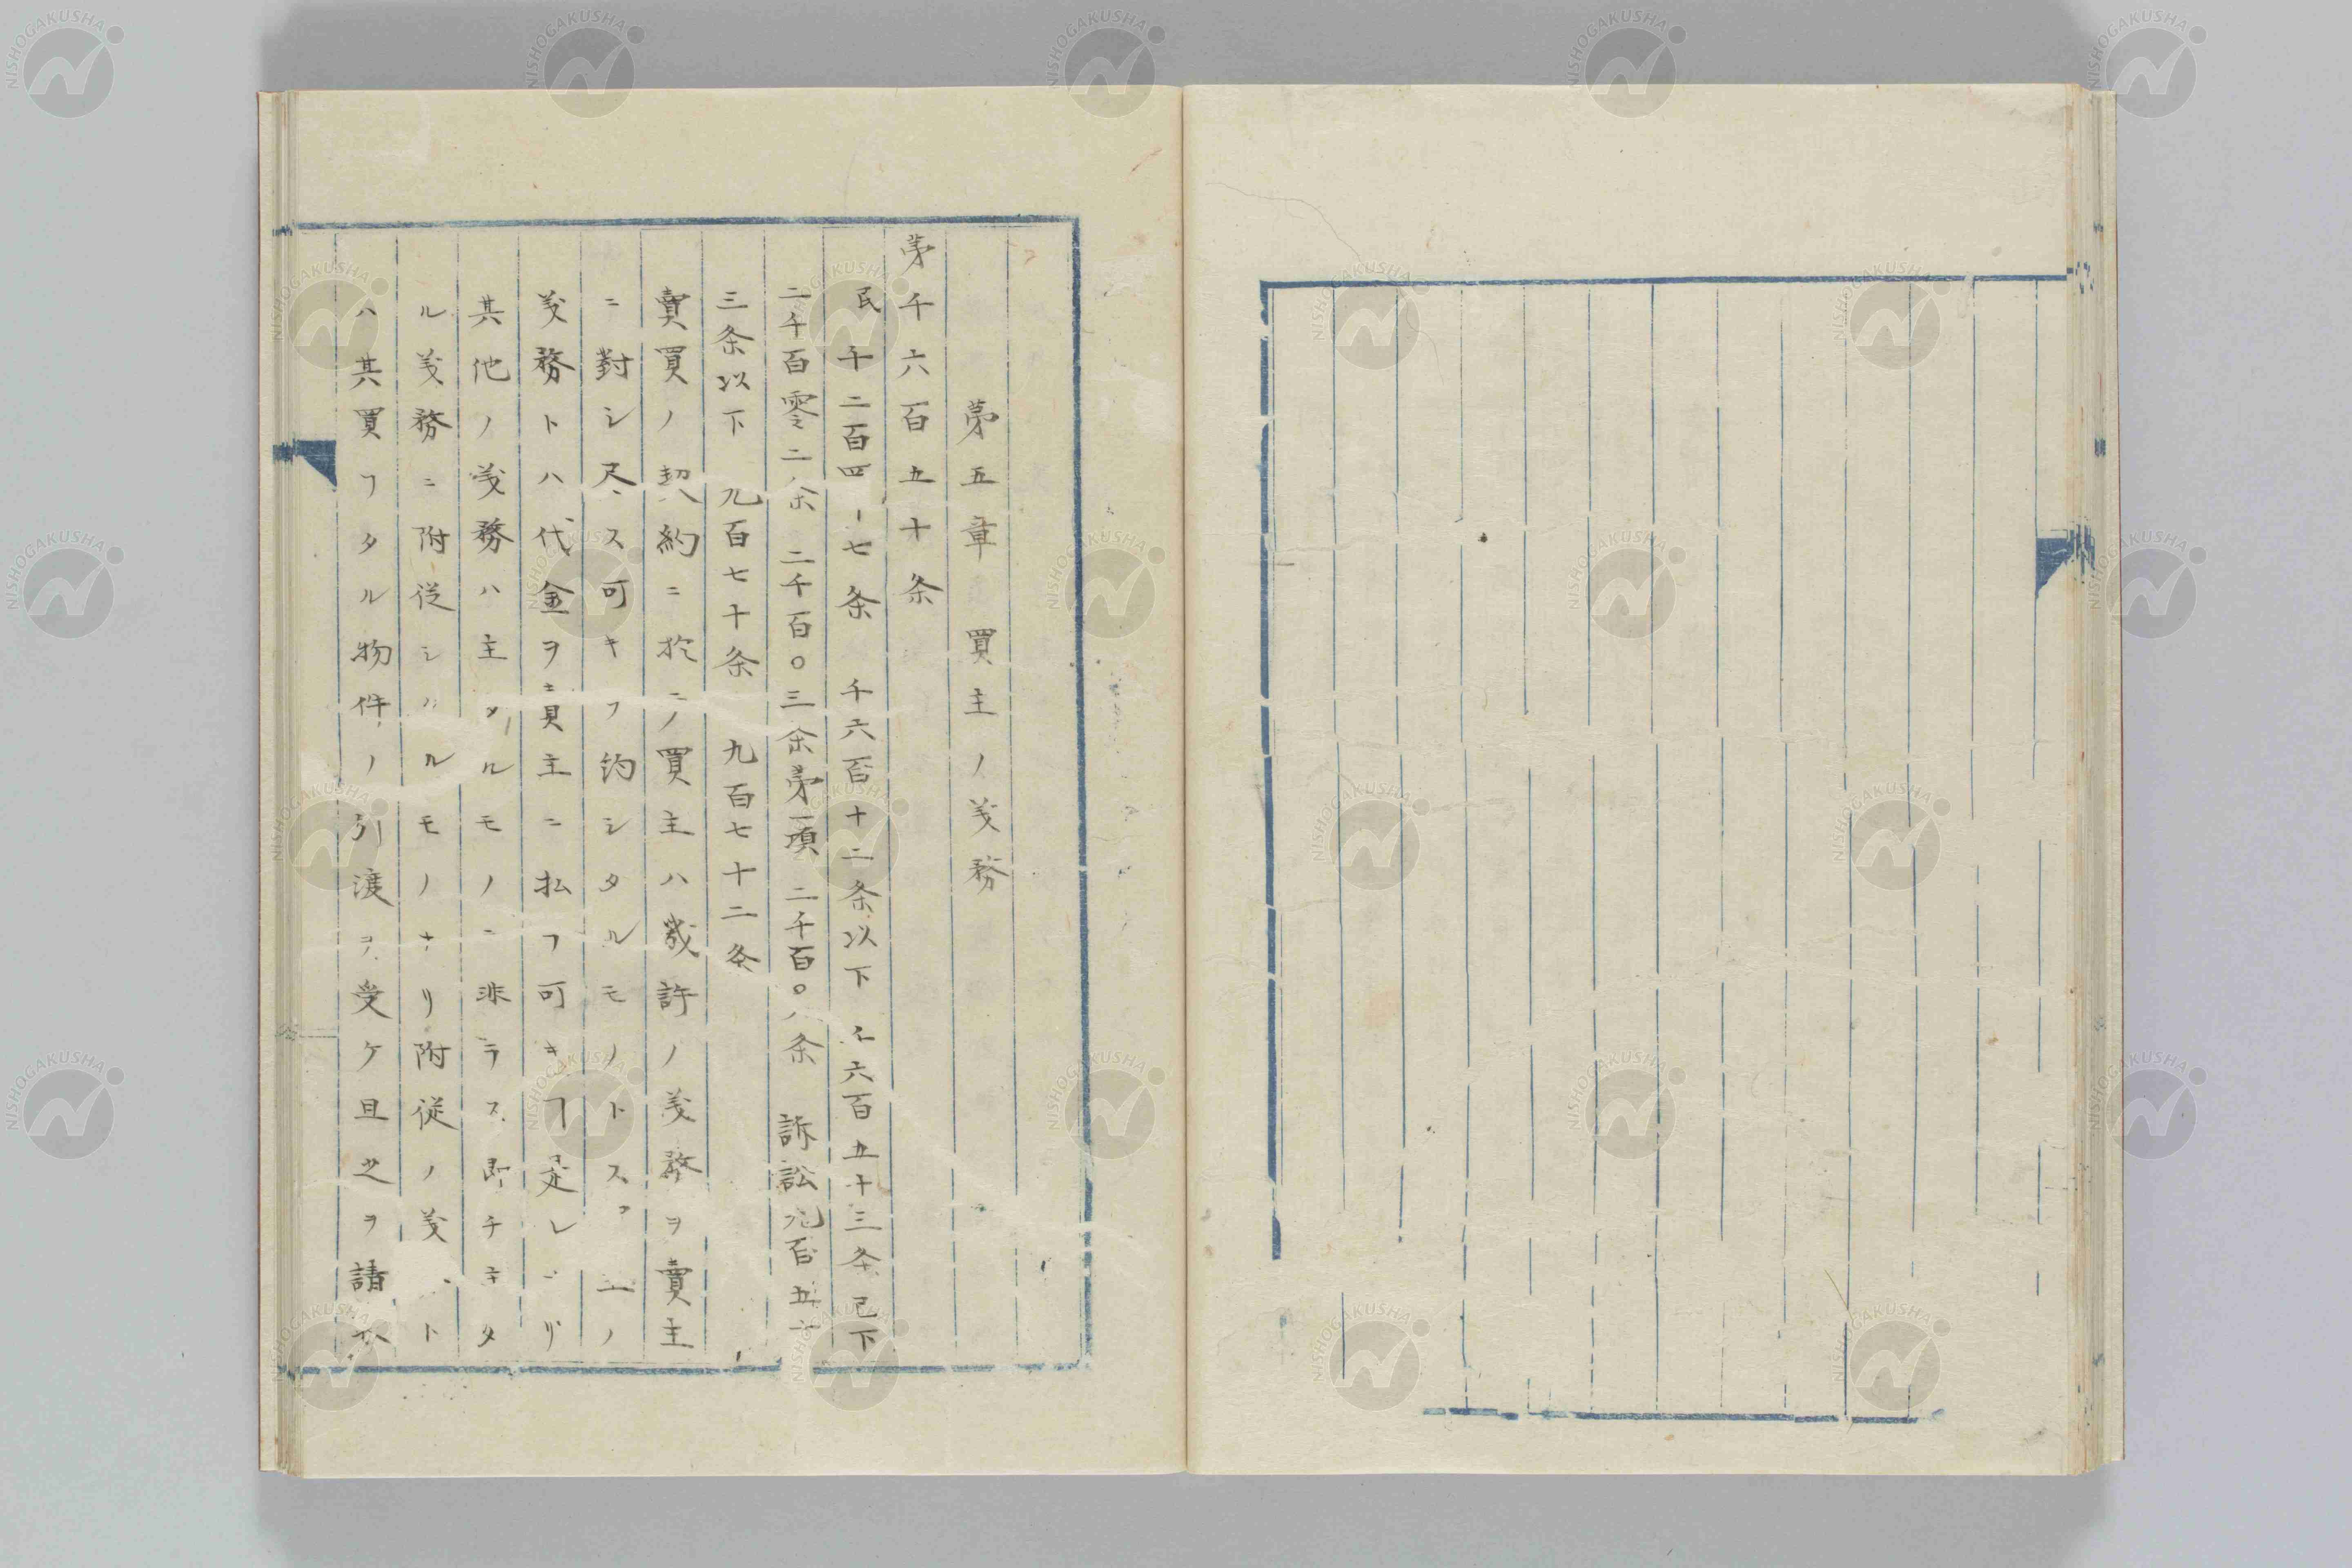 第五章 買主ノ義務
第千六百五十条
民 千二百四十七条 千六百十二条以下 千六百五十三条已下
二千百零二条 二千百〇三条第一項 二千百〇八条 訴訟九百五十
三条以下 九百七十条 九百七十二条
賣買ノ契約ニ於テノ買主ハ幾許ノ義務ヲ賣主
ニ對シ尽ス可キヿ約シタルモノトス
義務トハ代金ヲ賣主ニ払フ可キヿ是レナリ
其他ノ義務ハ主タルモノニ非ラス即チ主タ
ル義務ニ附従シタルモノナリ附従ノ義務ト
ハ其買フタル物件ノ引渡ヲ受ケ且之ヲ請
NISHOGAKUSHA